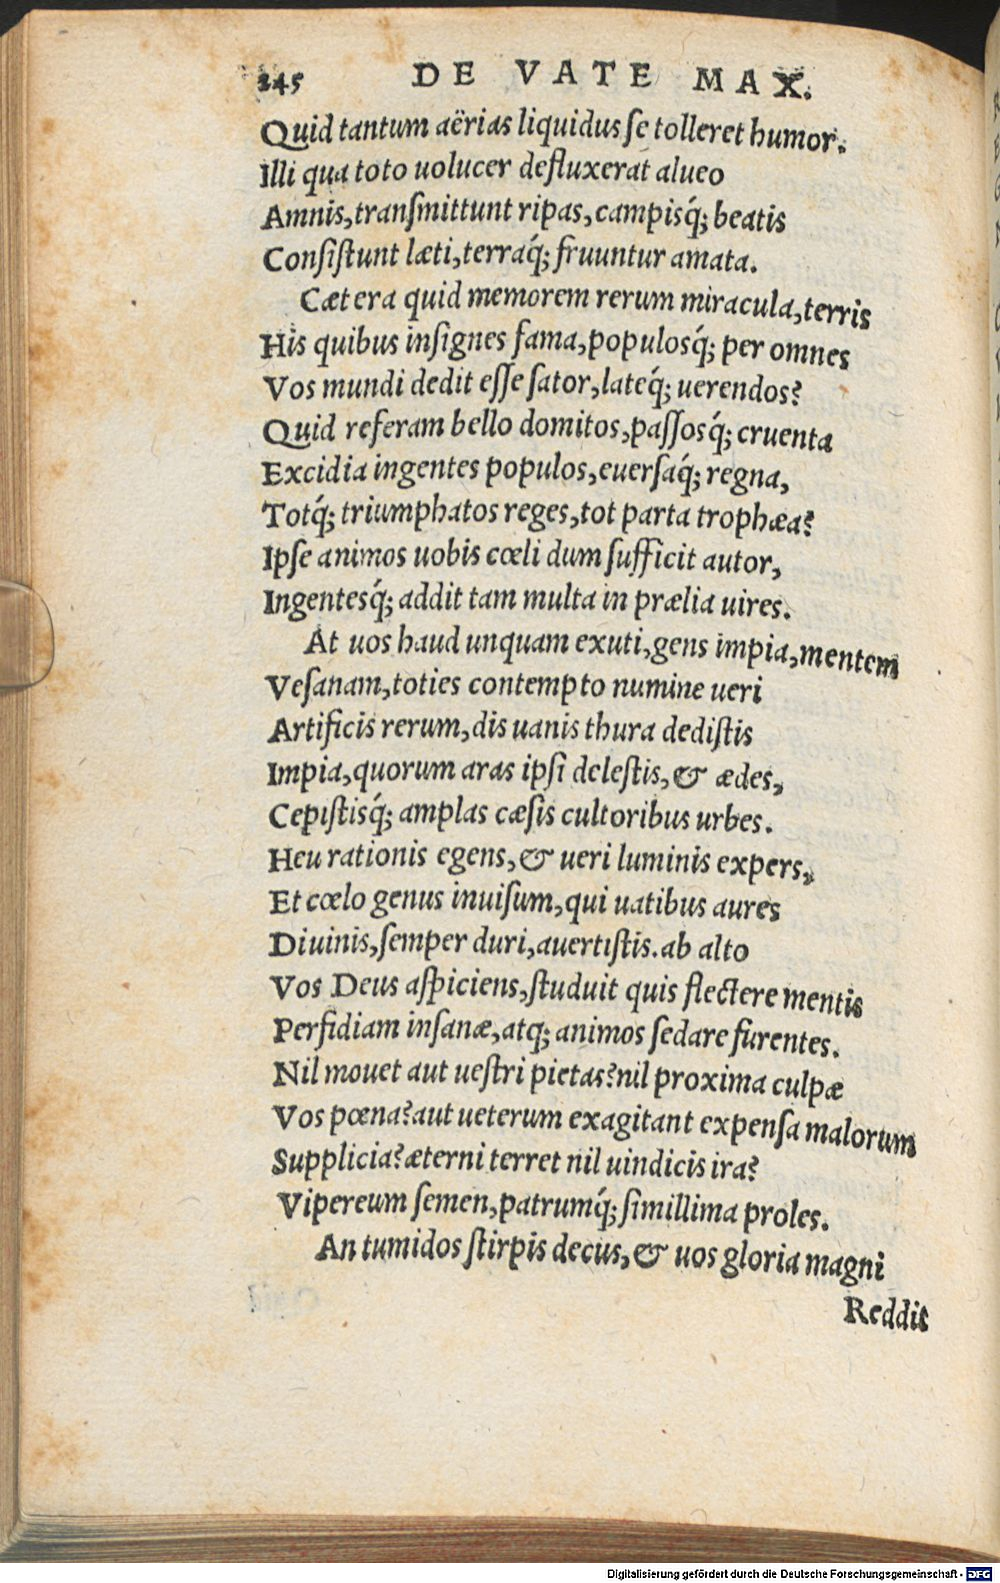 245 DE VATE MAX.
Quid tantum aërias liquidus ſe tolleret humor.
Illi qua toto uolucer defluxerat alueo
Amnis, tranſmittunt ripas, campisq́; beatis
Conſiſtunt læti, terraq́; fruuntur amata.
Cætera quid memorem rerum miracula, terris
His quibus inſignes fama, populosq́; per omnes
Vos mundi dedit eſſe ſator, lateq́; uerendos?
Quid referam bello domitos, paſſosq́; cruenta
Excidia ingentes populos, euerſaq́; regna,
Totq́; triumphatos reges, tot parta trophæa?
Ipſe animos uobis cœli dum ſufficit autor,
Ingentesq́; addit tam multa in prælia uires.
At uos haud unquam exuti, gens impia, mentem
Veſanam, toties contempto numine ueri
Artificis rerum, dis uanis thura dediſtis
Impia, quorum aras ipſi deleſtis, & ædes,
Cepiſtisq́; amplas cæſis cultoribus urbes.
Heu rationis egens, & ueri luminis expers,
Et cœlo genus inuiſum, qui uatibus aures
Diuinis, ſemper duri, auertiſtis. ab alto
Vos Deus aſpiciens, ſtuduit quis flectere mentis
Perfidiam inſanæ, atq; animos ſedare furentes.
Nil mouet aut ueſtri pietas? nil proxima culpæ
Vos pœna? aut ueterum exagitant expenſa malorum
Supplicia? æterni terret nil uindicis ira?
Vipereum ſemen, patrumq́; ſimillima proles.
An tumidos ſtirpis decus, & uos gloria magni
Reddit
Digitalisierung gefördert durch die Deutsche Forschungsgemeinschaft - DFG